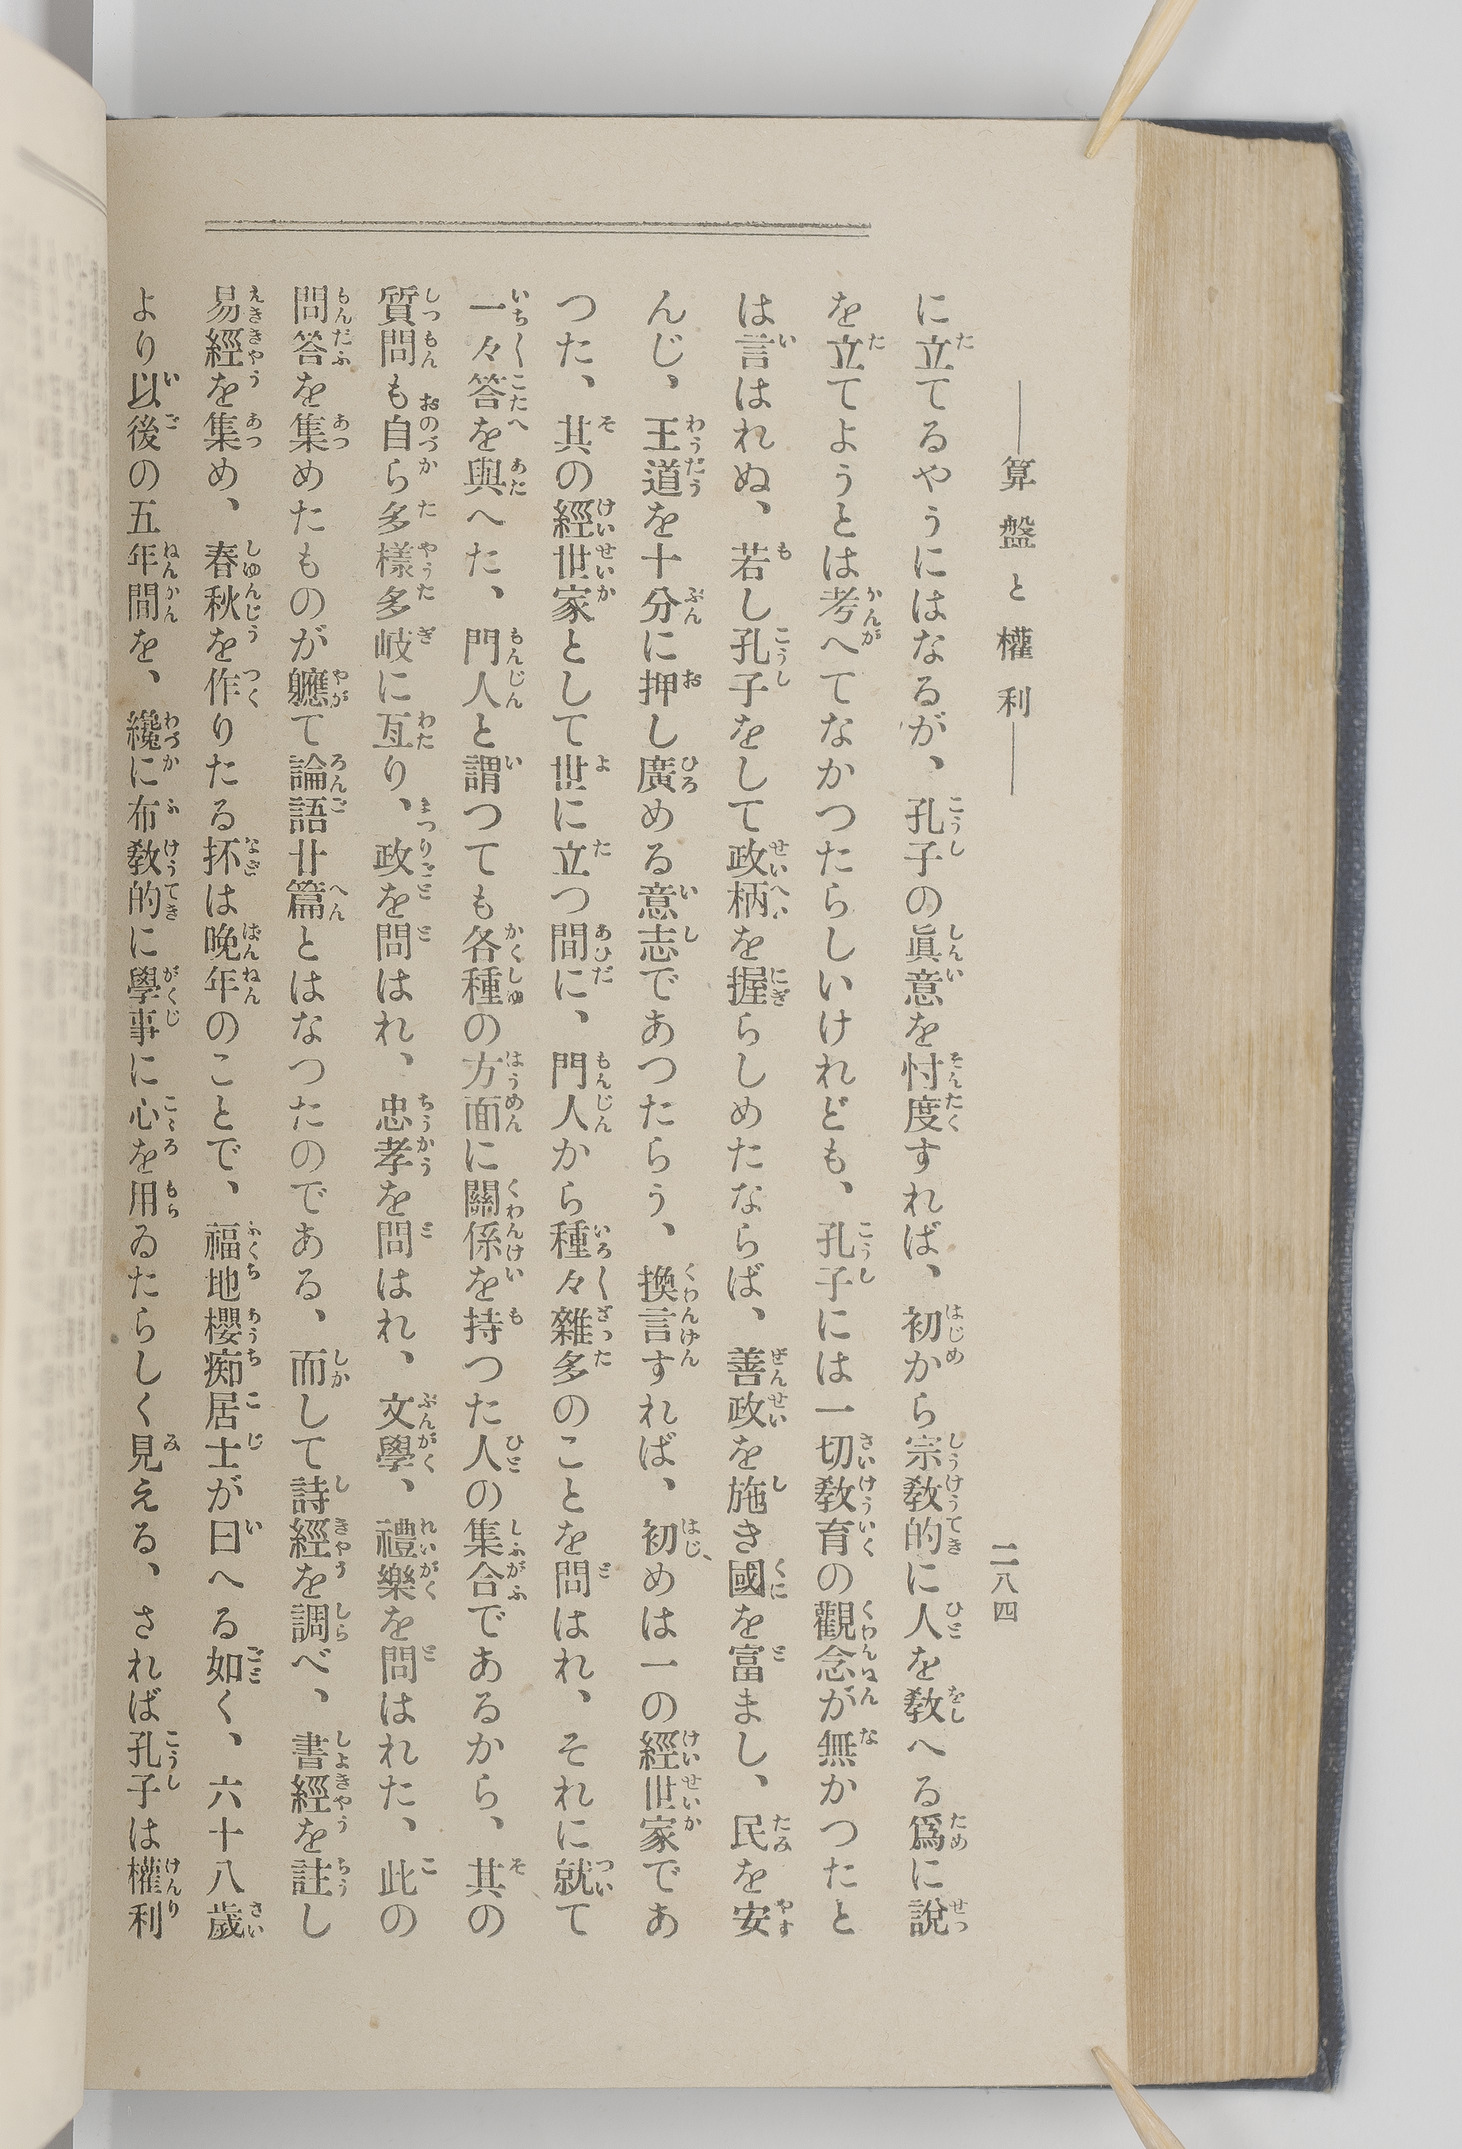 ――算盤と權利――
二八四
に立てるやうにはなるが、孔子の眞意を忖度すれば、初から宗敎的に人を敎へる爲に說
を立てようとは考へてなかつたらしいけれども、孔子には一切敎育の觀念が無かつたと
は言はれぬ、若し孔子をして政柄を握らしめたならば、善政を施き國を富まし、民を安
んじ、王道を十分に押し廣める意志であつたらう、換言すれば、初めは一の經世家であ
つた、其の經世家として世に立つ間に、門人から種々雜多のことを問はれ、それに就て
一々答を與へた、門人と謂つても各種の方面に關係を持つた人の集合であるから、其の
質問も自ら多樣多岐に亙り、政を問はれ、忠孝を問はれ、文學、禮樂を問はれた、此の
問答を集めたものが軈て論語廿篇とはなつたのである、而して詩經を調べ、書經を註し
易經を集め、春秋を作りたる抔は晚年のことで、福地櫻痴居士が曰へる如く、六十八歲
より以後の五年間を、纔に布敎的に學事に心を用ゐたらしく見える、されば孔子は權利